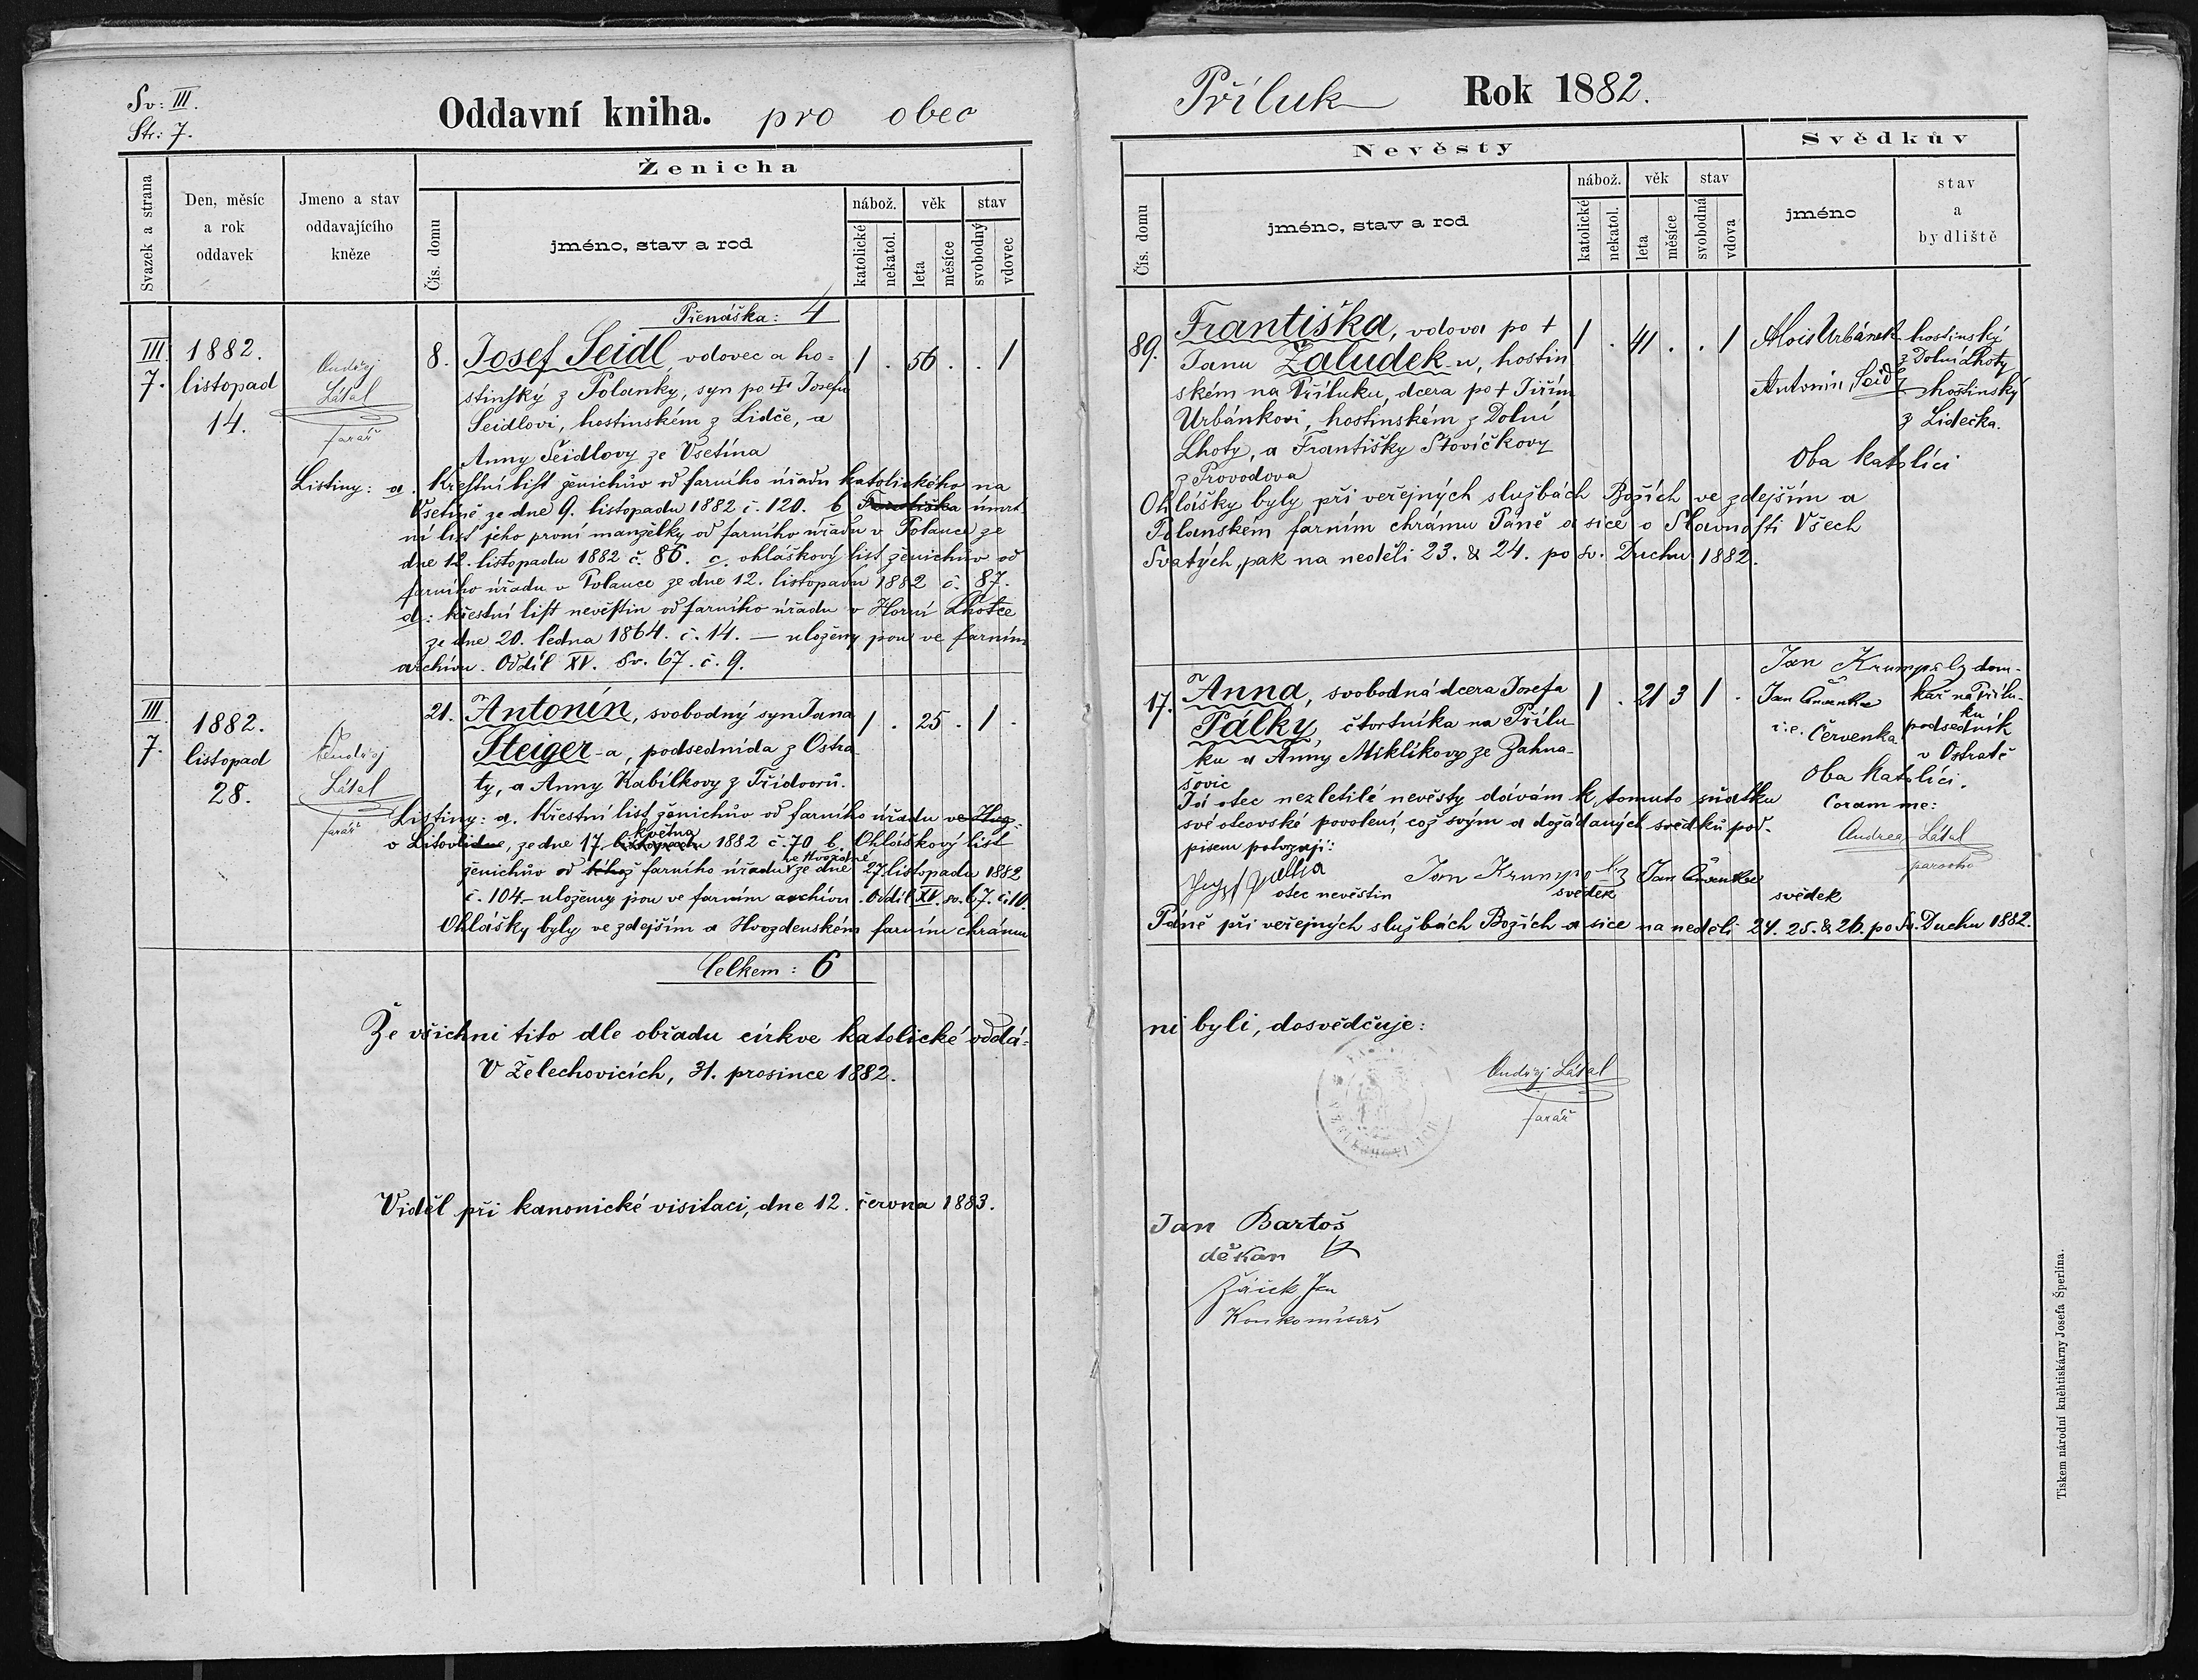 Sv: III.
Str: 7.
Oddavní kniha. pro obec
Ženicha
Svazek a strana
Den, měsíc
a rok
oddavek
Jmeno a stav
oddavajícího
kněze
Čís. domu
jméno, stav a rod
nábož.
věk
stav
katolické
nekatol.
leta
měsíce
svobodný
vdovec
Přenáška: 4
III. 7.
1882.
listopad
14.
Ondřej
Látal
farář
8.
Josef Seidl, vdovec a ho-
stinský z Polanky, syn po † Josefu
Seidlovi, hostinském z Lidče, a
Anny Seidlovy ze Vsetína
1 . 56 . . 1
Listiny: a. Křestní list ženichův od farního úřadu katolického na
Vsetíně ze dne 9. listopadu 1882 č. 120. b. úmrt
ní list jeho první manželky od farního úřadu v Polance ze
dne 12. listopadu 1882 č. 86. c. ohláškový list ženichův od
farního úřadu v Polance ze dne 12. listopadu 1882 č. 87.
d: křestní list nevěstin od farního úřadu v Horní Lhotce
ze dne 20. ledna 1864. č. 14. — uloženy jsou ve farním
archívu. Oddíl XV. Sv. 67. č. 9.
III. 7.
1882.
listopad
28.
Ondřej
Látal
farář
21.
Antonín, svobodný syn Jana
Steiger-a, podsednída z Ostra
ty, a Anny Kabílkovy z Třídvorů.
1 . 25 . 1 .
Listiny: a. Křestní list ženichův od farního úřadu ve Hvoz-
v Litovli dne, ze dne 17. listopadu května 1882 č. 70 b. Ohláškový list
ženichův od téhož farního úřadu ve Hvozdné ze dne 27 listopadu 1882
č. 104. – uloženy jsou ve farním archívu. Oddíl XV. sv. 67. č. 10.
Ohlášky byly ve zdejším a Hvozdenském farním chrámu
Celkem: 6
Že všichni tito dle obřadu církve katolické oddá-
V Želechovicích, 31. prosince 1882.
Viděl při kanonické visitaci, dne 12. června 1883.
Příluk Rok 1882.
Nevěsty
Svědkův
Čís. domu
jméno, stav a rod
nábož.
věk
stav
katolické
nekatol.
leta
měsíce
svobodná
vdova
jméno
stav
a
bydliště
89.
Františka, vdova po †
Janu Žaludek-u, hostin
ském na Příluku, dcera po † Jiřím
Urbánkovi, hostinském z Dolní
Lhoty, a Františky Stovíčkovy
z Provodova
1 . 41 . . 1
Alois Urbánek hostinský
z Dolní Lhoty
Antonín Seidl hostinský
z Lidečka.
Oba katolíci
Ohlášky byly při veřejných službách Božích ve zdejším a
Polanském farním chrámu Páně a sice o Slavnosti Všech
Svatých, pak na neděli 23. & 24. po sv. Duchu 1882.
17.
Anna, svobodná dcera Josefa
Pálky, čtvrtníka na Přílu
ku a Anny Miklíkovy ze Zahna-
šovic
1 . 21 3 1 .
Jan Krumpolz dom-
kář na Přílu-
ku
Jan Červenka
i.e. Červenka podsedník
v Ostratě
Oba katolíci.
Já otec nezletilé nevěsty dávám k tomuto sňatku
své otcovské povolení, což svým a dožádaných svědků pod-
pisem potvrzuji:
Coram me:
Andreas Látal
parocho
otec nevěstin
Jan Krumpolz
svědek
Jan Červenka
svědek
Páně při veřejných službách Božích a sice na neděli 24. 25. & 26. po Sv. Duchu 1882.
ni byli, dosvědčuje:
Ondřej Látal
farář
Jan Bartoš
děkan
Konkomisař
Tiskem národní kněhtiskárny Josefa Šperlína.